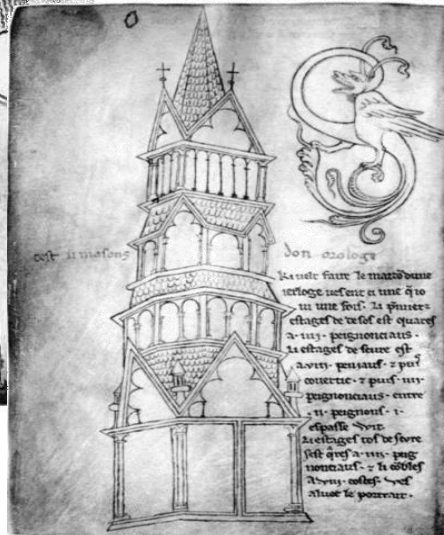 S
cest li masons don orologe
Ki velt faire le maizō dune
ierloge ves ent ci une q̄ io
vi une fois. Li p̄miers
estages de desos est quares
a .iiii. peignonciaus.
Li estages de seure est
a .viii. peniaus. ⁊ puis
covertic. ⁊ puis .iiii.
peignonciaus. entre
.ii. peignons .i.
espasse wit.
Li estages tos de sevre
sest q̄res a .iiii. peig
nonciaus. ⁊ li cōbles
a .viii. costes. ves
aluec le portrait.